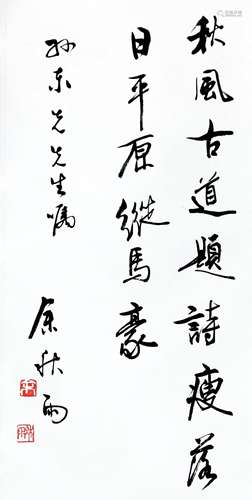 秋風古道題詩瘦落
日平原縱馬豪
孙东先先生嘱
余秋雨